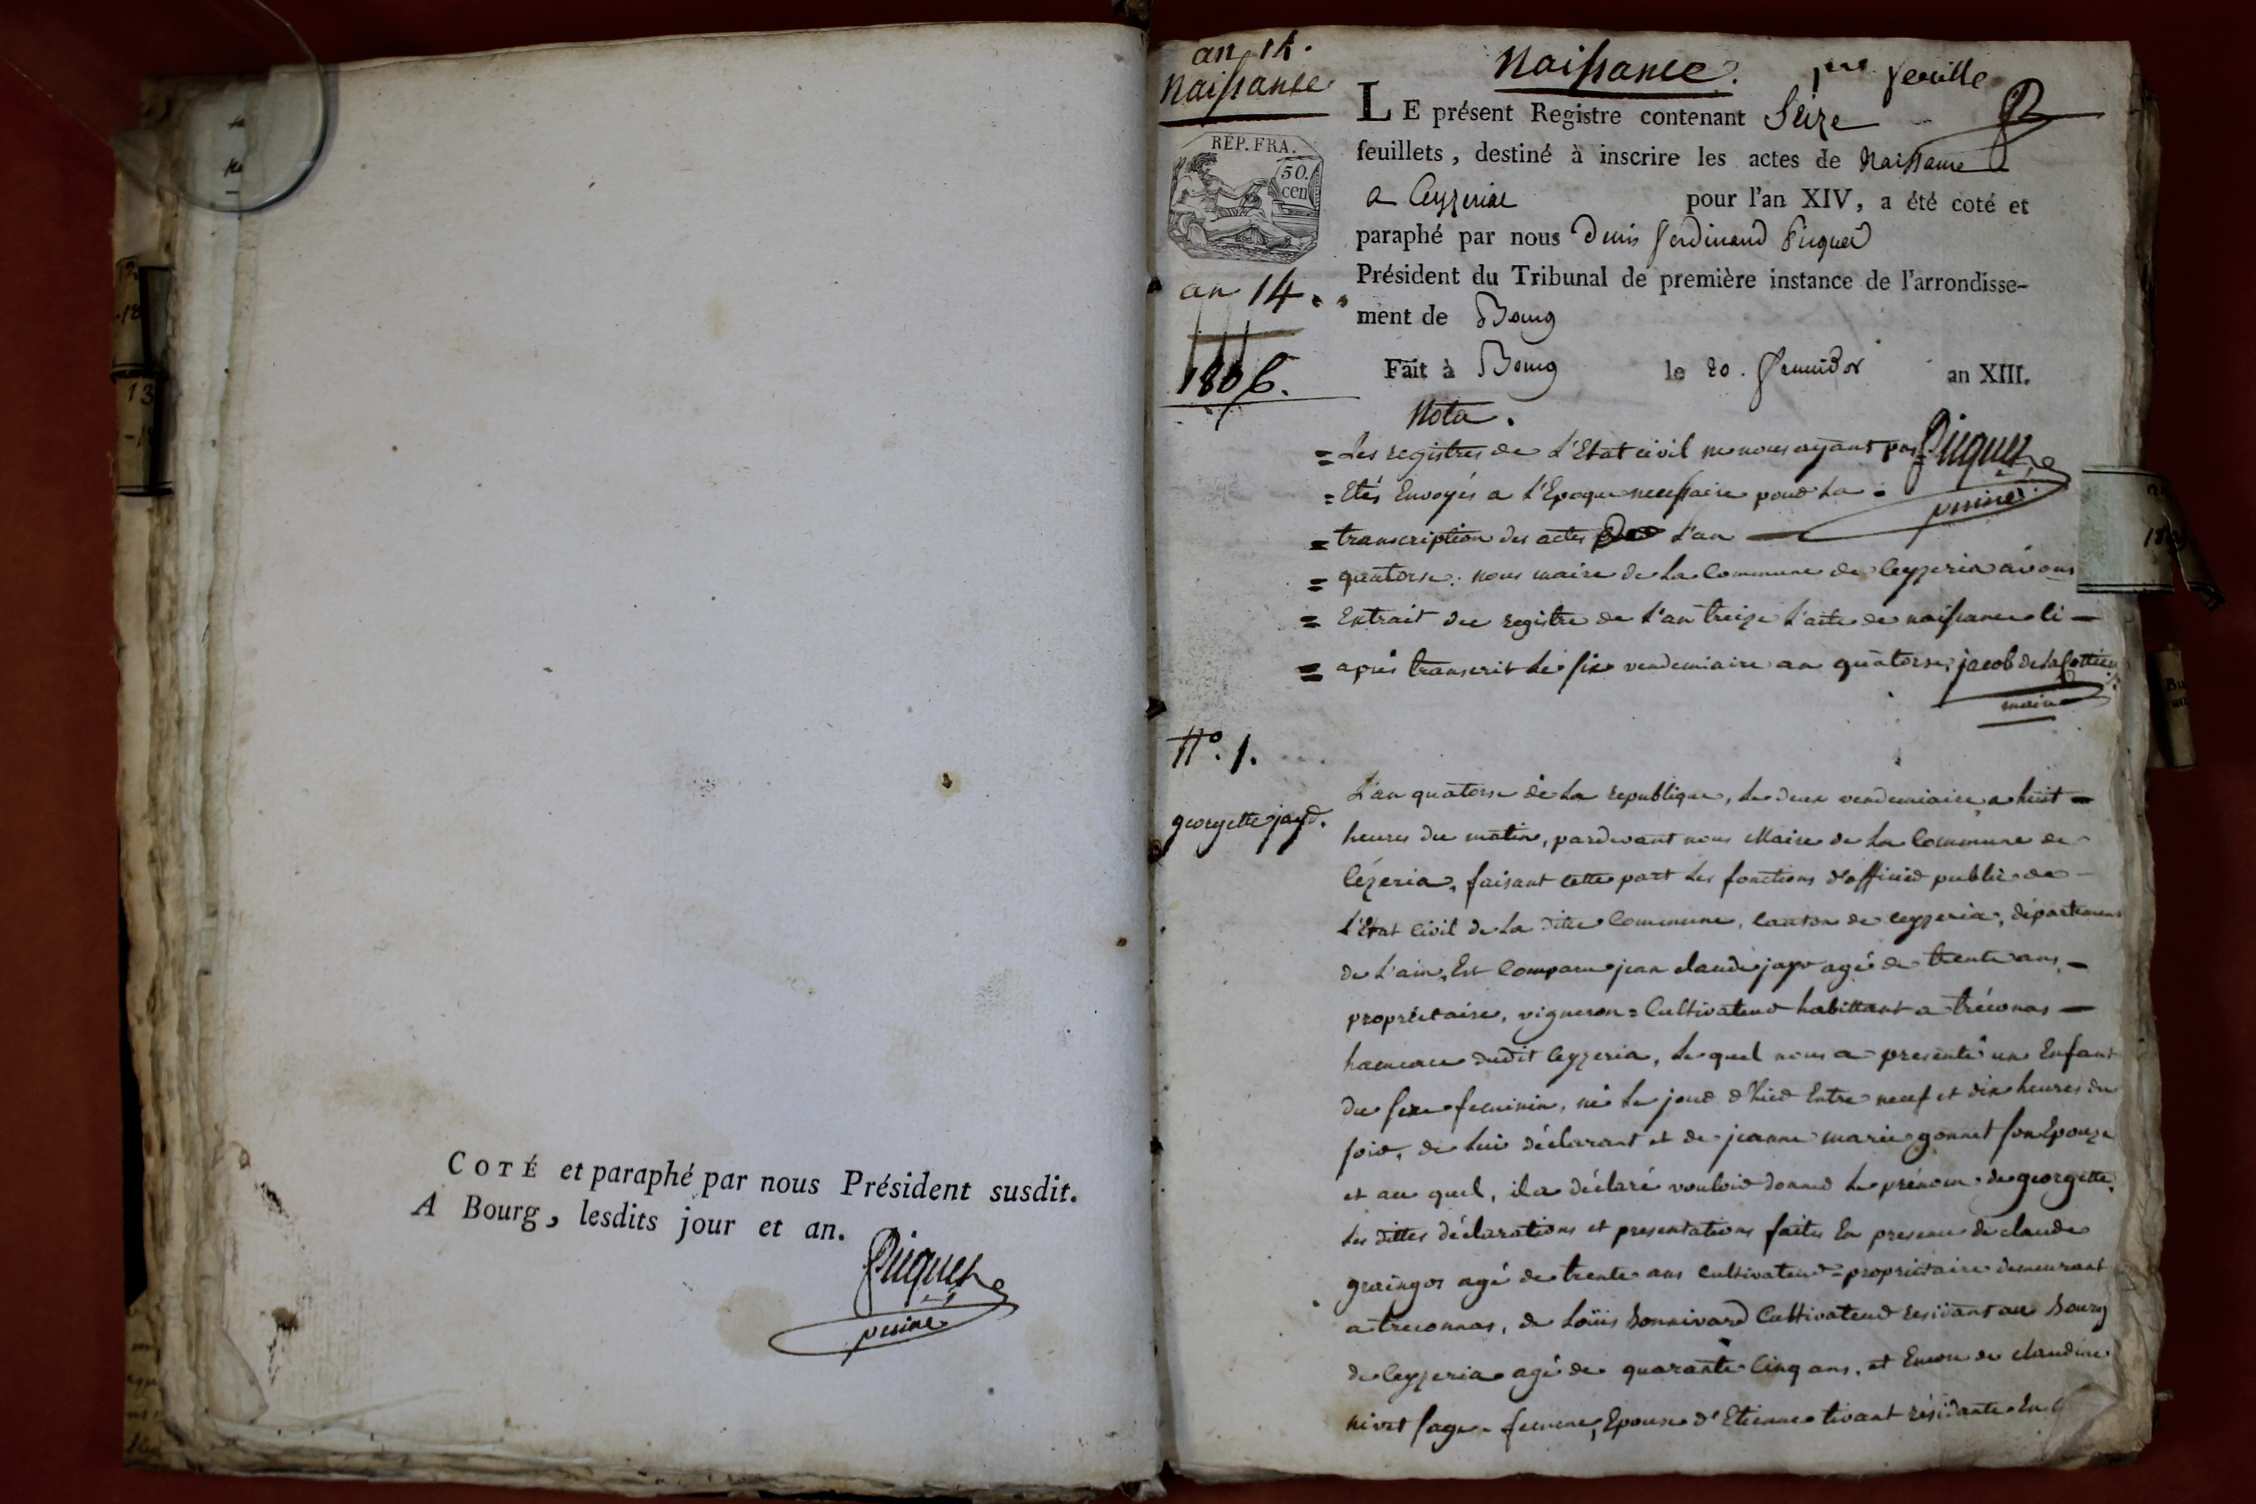 COTÉ et paraphé par nous Président susdit.
A Bourg, lesdits jour et an.
Picquet
président
an 14.
Naissance
RÉP. FRA.
50.
cen
an 14.
1806.
Naissance.
1ere feuille
LE présent Registre contenant Seize
feuillets, destiné à inscrire les actes de Naissance
a Ceyzeriat pour l'an XIV, a été coté et
paraphé par nous Denis ferdinand Picquet
Président du Tribunal de première instance de l'arrondisse-
ment de Bourg
Fait à Bourg le 20. fructidor an XIII.
Nota.
= Les registres de L'Etat civil ne nous ayant pas
Picquet
= Etés Envoyés a L'Epoque necessaire pour La
= transcription des actes L'an
= quatorse. nous maire de La Commune de Ceyzeria avons
= Extrait du registre de L'an treize L'acte de naissance ci-
= après transcrit Le six vendemiaire an quatorse, jacob de la Cottiere
maire
N°. 1.
georgette jayr.
L'an quatorse de La republique, Le deux vendemiaire a huit
heures du matin, pardevant nous Maire de La Commune de
Cézeria, faisant cette part Les fonctions d'officier public de
L'Etat Civil de La ditte Commune, Canton de ceyzeria, département
de L'ain, Est Comparu jean claude jayr agé de trente ans,
propriétaire, vigneron = Cultivateur habittant a tréconas
hameau dudit Ceyzeria, Le quel nous a presenté un Enfant
du sexe feminin, né Le jour d'hier Entre neuf et dix heures du
soir, de Lui déclarant et de jeanne marie gonnet son Epouze
et au quel, il a déclaré vouloir donner Le prénom de georgette,
Les dittes déclarations et presentations faites En presence de claude
graingos agé de trente ans cultivateur = propriétaire demeurant
a treconnas, de Loüis bonnivard Cultivateur residant au Bourg
de Ceyzeria agé de quarante Cinq ans, et Encore de claudine
nivet sage-femme, Epouse d'Etienne tivant résidante En